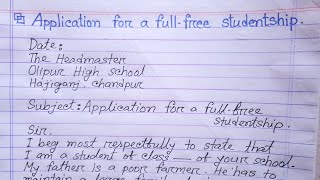 Application for a full-free studentship.
Date:
The Headmaster
Olipur High school
Hajiganj, chandpur
Subject: Application for a full-free
studentship.
Sir,
I beg most respectfully to state that
I am a student of class — of your school.
My father is a poor farmer. He has to
maintain a large family